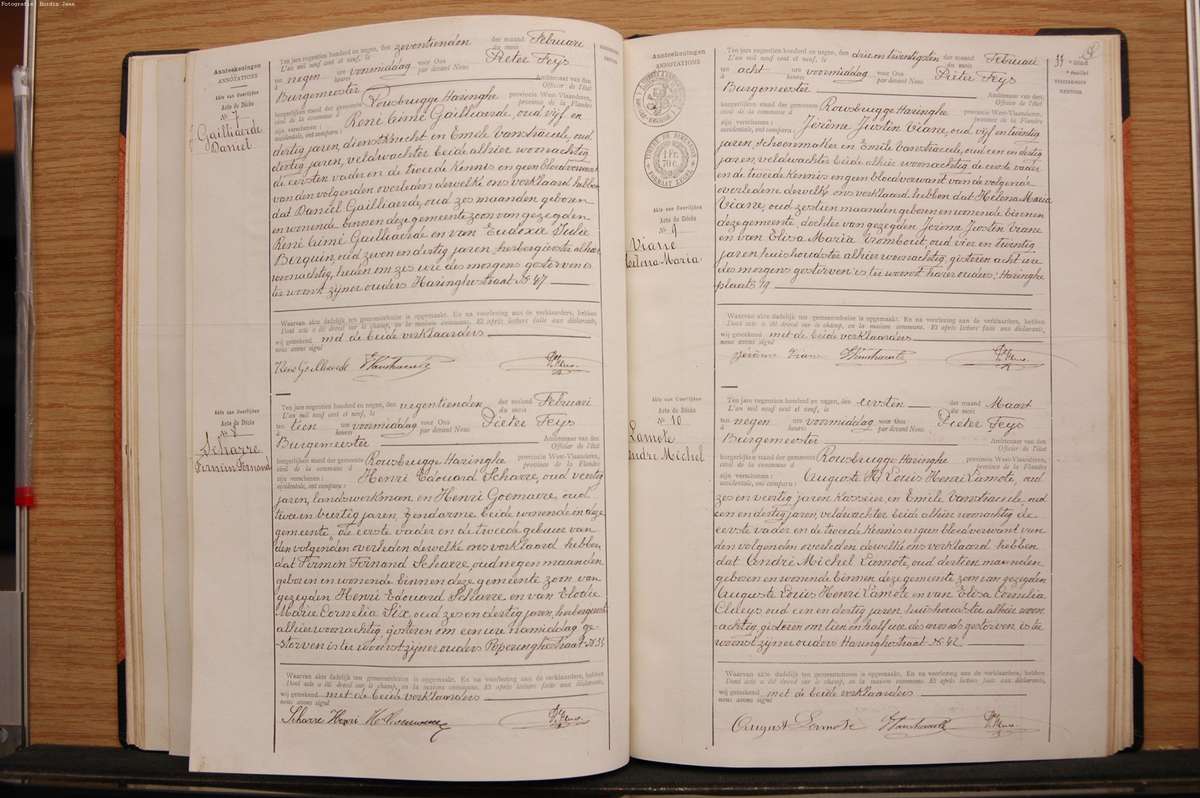 Fotografie: Burdin Jean
Aanteekeningen
ANNOTATIONS
Akte van Overlijden
Acte de Décès
№ 7
Gailliaerde
Daniel
Ten jare negentien honderd en negen, den zeventienden der maand Februari
L'an mil neuf cent et neuf, le du mois
ten negen ure voormiddag voor Ons Pieter Feys
à heures par devant Nous
Burgemeester Ambtenaar van den
Officier de l'État
burgerlijken stand der gemeente Rousbrugge Haringhe provincie West-Vlaanderen,
civile de la commune d province de la Flandre
zijn verschenen: René Aimé Gailliaerde, oud vijf en
occidentale, ont comparu:
dertig jaren, dienstknecht en Emile Vanstraceele, oud
dertig jaren, veldwachter beide alhier woonachtig
de eersten vader en de tweede kennis en geen bloedverwant
van den volgenden overleden dewelke ons verklaard hebben
dat Daniel Gailliaerde, oud zes maanden geboren
en wonende binnen deze gemeente zoon van gezegden
René Aimé Gailliaerde en van Eudoxie Julie
Berquin, oud zeven en dertig jaren, herbergierster alhier
woonachtig, heden om zes ure des morgens gestorven is
ter woonst zijner ouders Haringhestraat № 47
Waarvan akte dadelijk ten gemeentehuize is opgemaakt. En na voorlezing aan de verklaarders, hebben
Dont acte a été dressé sur le champ, en la maison commune. Et après lecture faite aux déclarants,
wij geteekend met de beide verklaarders
nous avons signé
René Gailliaerde
Akte van Overlijden
Acte de Décès
№ 8
Scharre
Firmin Fernand
Ten jare negentien honderd en negen, den negentienden der maand Februari
L'an mil neuf cent et neuf, le du mois
ten tien ure voormiddag voor Ons Pieter Feys
à heures par devant Nous
Burgemeester Ambtenaar van den
Officier de l'État
burgerlijken stand der gemeente Rousbrugge Haringhe provincie West-Vlaanderen,
civile de la commune d province de la Flandre
zijn verschenen: Henri Edouard Scharre, oud veertig
occidentale, ont comparu:
jaren, landswerkman en Henri Goemaere, oud
twee en veertig jaren, Zendarme beide wonende in deze
gemeente, de eerste vader en de tweede gebuur van
den volgenden overleden dewelke ons verklaard hebben,
dat Firmin Fernand Scharre, oud negen maanden
geboren en wonende binnen deze gemeente zoon van
gezegden Henri Edouard Scharre en van Elodie
Marie Cornelia Six, oud zes en dertig jaren, herbergierster
alhier woonachtig, gisteren om een ure namiddag ge-
storven is ter woonst zijner ouders Poperinghestraat № 35
Waarvan akte dadelijk ten gemeentehuize is opgemaakt. En na voorlezing aan de verklaarders, hebben
Dont acte a été dressé sur le champ, en la maison commune. Et après lecture faite aux déclarants,
wij geteekend met de beide verklaarders
nous avons signé
Scharre Henri
Aanteekeningen
ANNOTATIONS
1 FR.
Akte van Overlijden
Acte de Décès
№ 9
Viane
Helena-Maria
Ten jare negentien honderd en negen, den drie en twintigsten der maand Februari
L'an mil neuf cent et neuf, le du mois
ten acht ure voormiddag voor Ons Pieter Feys
à heures par devant Nous
Burgemeester Ambtenaar van den
Officier de l'État
burgerlijken stand der gemeente Rousbrugge Haringhe provincie West-Vlaanderen,
civile de la commune d province de la Flandre
zijn verschenen: Jérôme Justin Viane, oud vijf en twintig
occidentale, ont comparu:
jaren, schoenmaker en Emile Vanstraceele, oud een en dertig
jaren, veldwachter beide alhier woonachtig de eerste vader
en de tweede kennis en geen bloedverwant van de volgende
overledene dewelke ons verklaard hebben dat Helena Maria
Viane, oud zestien maanden geboren en wonende binnen
deze gemeente, dochter van gezegden Jérôme Justin Viane
en van Elisa Maria Tromboit, oud vier en twintig
jaren huishoudster alhier woonachtig gisteren acht ure
des morgens gestorven is ter woonst harer ouders; Haringhe
plaats 19
Waarvan akte dadelijk ten gemeentehuize is opgemaakt. En na voorlezing aan de verklaarders, hebben
Dont acte a été dressé sur le champ, en la maison commune. Et après lecture faite aux déclarants,
wij geteekend met de beide verklaarders
nous avons signé
Jérôme Viane
Akte van Overlijden
Acte de Décès
№ 10
Lamote
André Michel
Ten jare negentien honderd en negen, den eersten der maand Maart
L'an mil neuf cent et neuf, le du mois
ten negen ure voormiddag voor Ons Pieter Feys
à heures par devant Nous
Burgemeester Ambtenaar van den
Officier de l'État
burgerlijken stand der gemeente Rousbrugge Haringhe provincie West-Vlaanderen,
civile de la commune d province de la Flandre
zijn verschenen: Auguste Louis Henri Lamote, oud
occidentale, ont comparu:
zes en veertig jaren Kassier en Emile Vanstraceele, oud
een en dertig jaren, veldwachter beide alhier woonachtig de
eerste vader en de tweede kennis en geen bloedverwant van
den volgenden overleden dewelke ons verklaard hebben
dat André Michel Lamote, oud dertien maanden
geboren en wonende binnen deze gemeente zoon van gezegden
Auguste Louis Henri Lamote en van Elisa Cornelia
Claeys oud een en dertig jaren, huishoudster alhier woon-
achtig gisteren om tien en half ure des avonds gestorven, is ter
woonst zijner ouders Haringhestraat № 42
Waarvan akte dadelijk ten gemeentehuize is opgemaakt. En na voorlezing aan de verklaarders, hebben
Dont acte a été dressé sur le champ, en la maison commune. Et après lecture faite aux déclarants,
wij geteekend met de beide verklaarders
nous avons signé
August Lamote